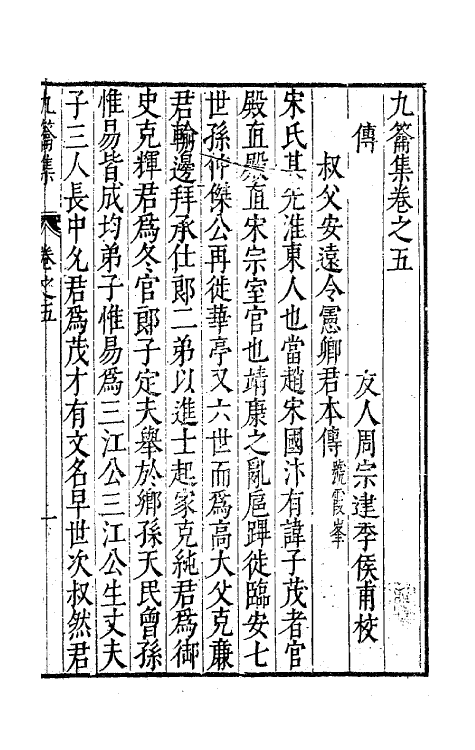 九籥集卷之五
傳　友人周宗建季侯甫校
叔父安遠令憲卿君本傳號霞峯
宋氏其先淮東人也當趙宋國汴有諱子茂者官
殿直殿直宋宗室官也靖康之亂扈蹕徙臨安七
世孫仲傑公再徙華亭又六世而爲高大父克亷
君輸邊拜承仕郎二弟以進士起家克純君爲御
史克輝君爲冬官郎子定夫舉於鄉孫天民曾孫
惟易皆成均弟子惟易爲三江公三江公生丈夫
子三人長中允君爲茂才有文名早世次叔然君
九籥集　卷之五　一